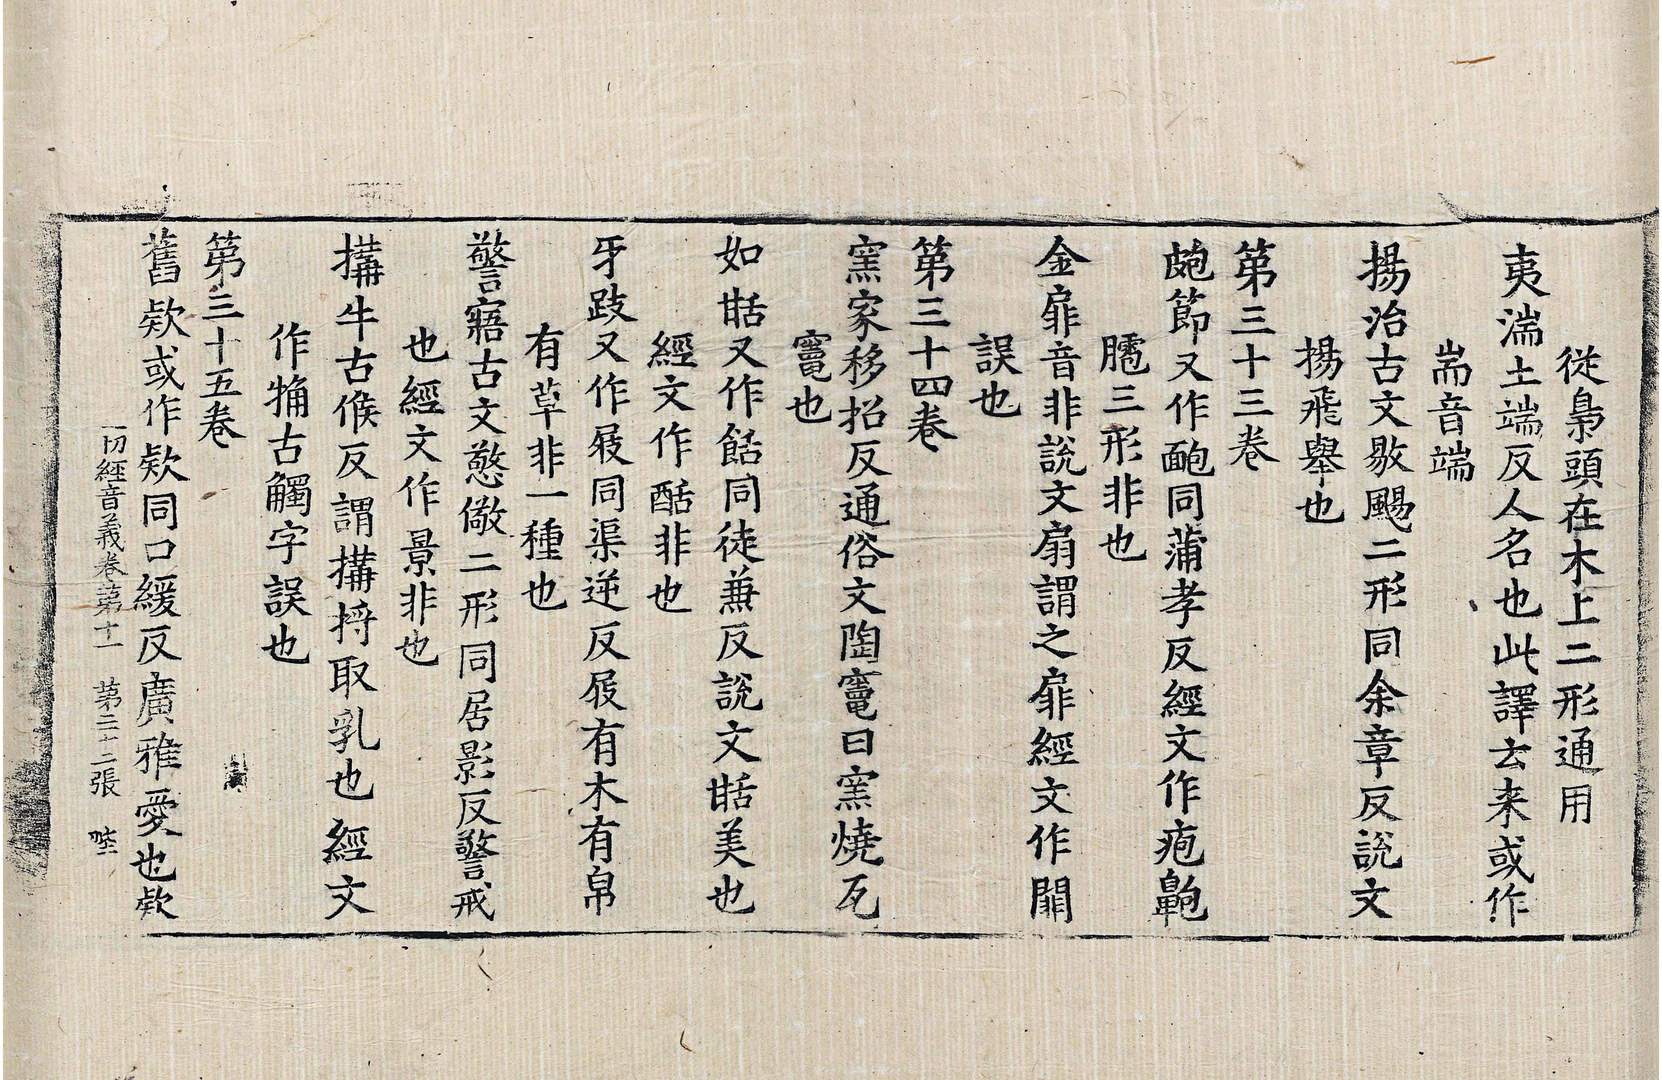 從梟頭在木上二形通用
夷湍土端反人名也此譯云来或作
耑音端
揚治古文敭颺二形同余章反說文
揚飛舉也
第三十三卷
皰節又作䩌同蒲孝反經文作疱皰
臑三形非也
金扉音非說文扇謂之扉經文作閗
誤也
第三十四卷
窯家移招反通俗文陶竃曰窯燒瓦
竃也
如甛又作餂同徒兼反說文甛美也
經文作酟非也
牙跂又作屐同渠逆反屐有木有帛
有草非一種也
警寤古文憼儆二形同居影反警戒
也經文作景非也
搆牛古候反謂搆捋取乳也經文
作觕古觸字誤也
第三十五卷
舊欵或作欵同口緩反廣雅愛也欵
一切經音義卷第十一 第三十二張